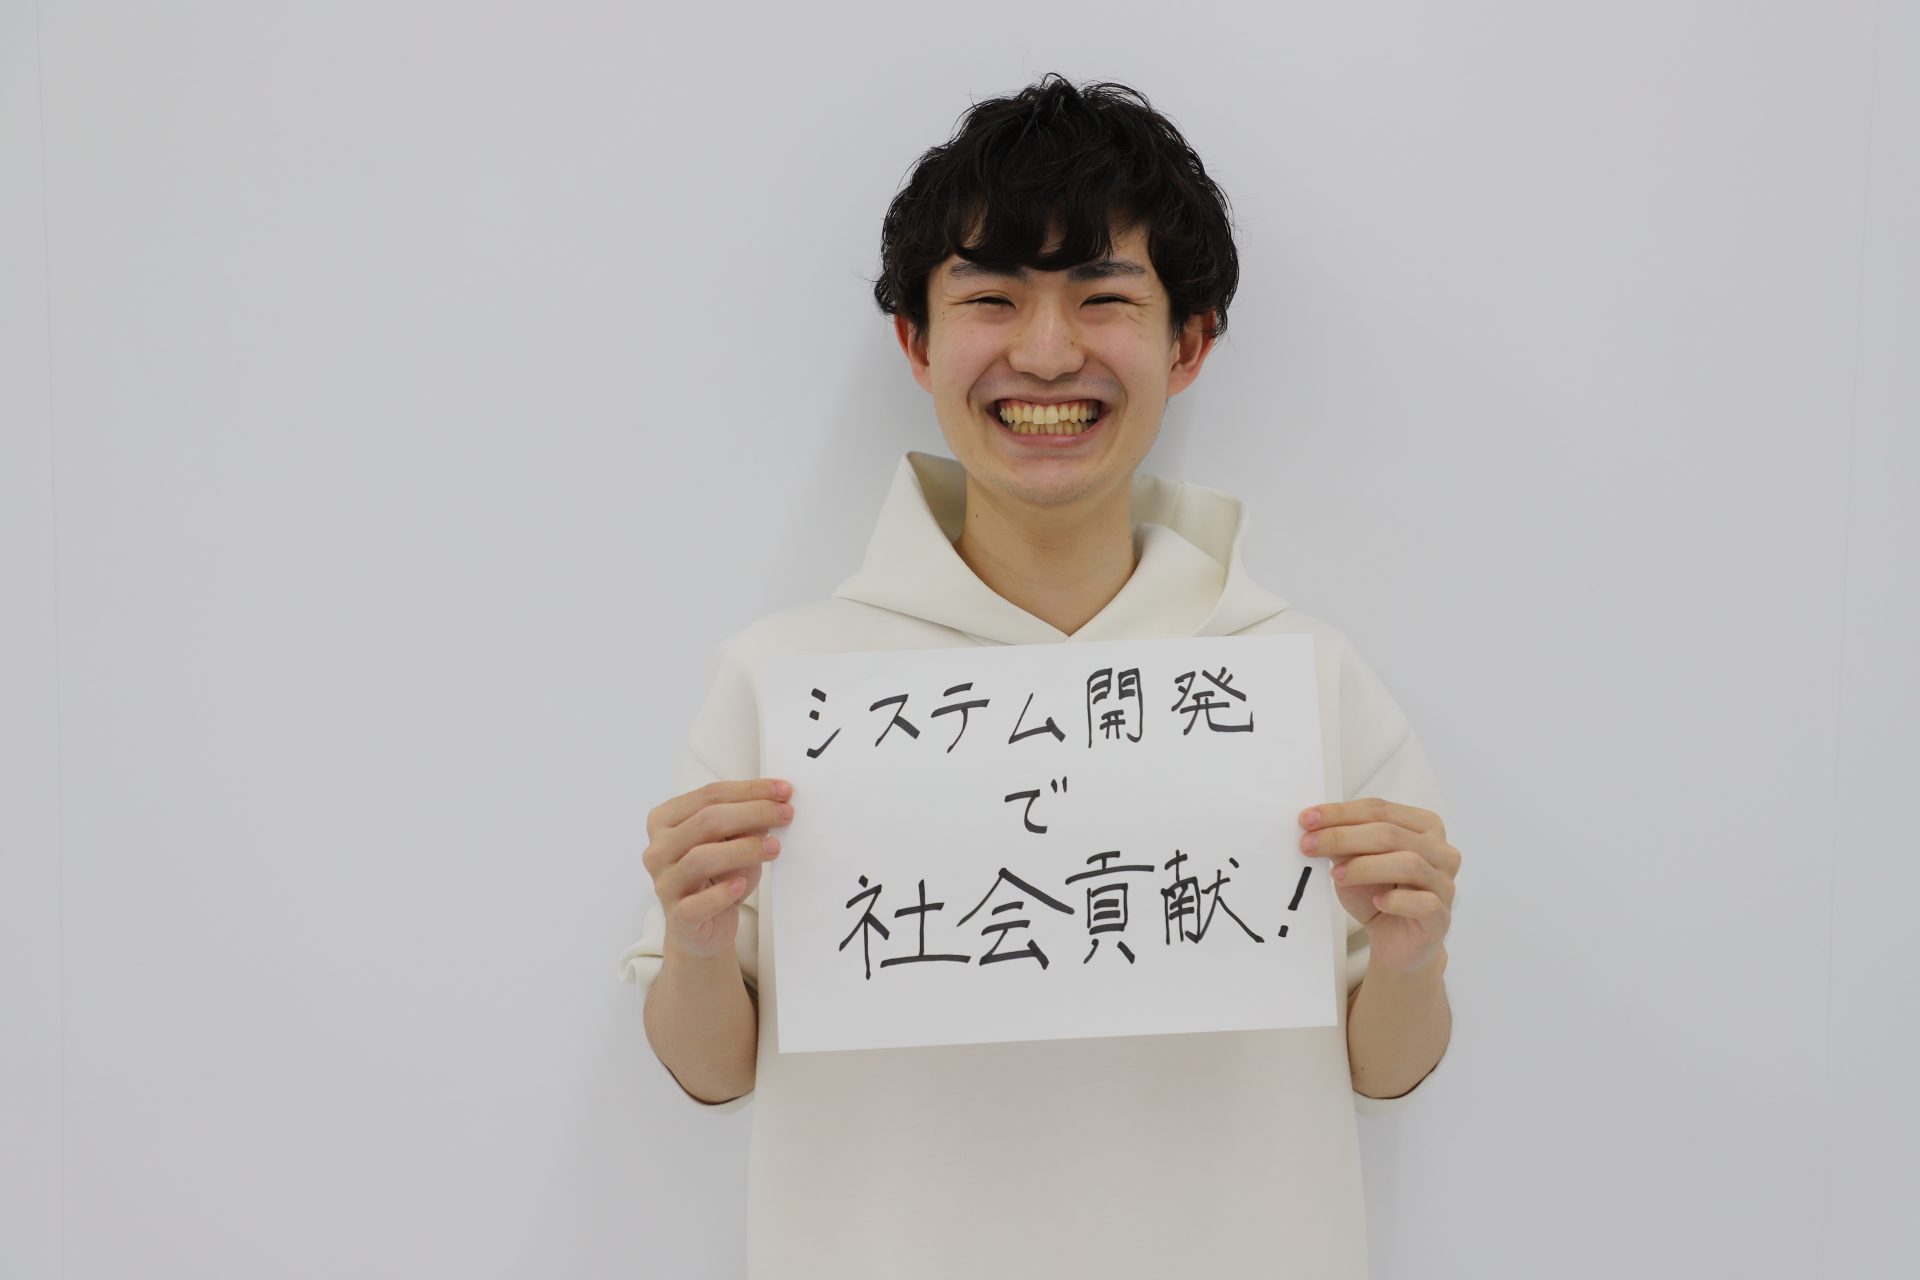 システム開発
で
社会貢献!